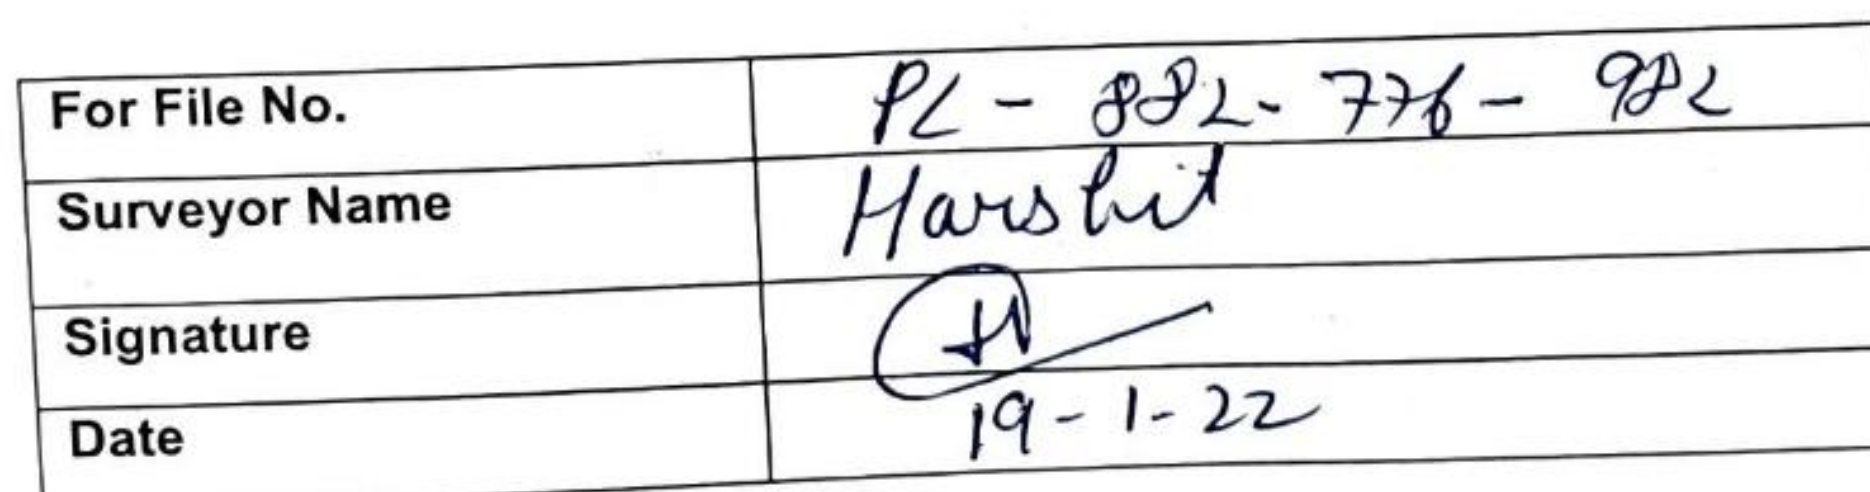 For File No. PL - 882 - 776 - 982
Surveyor Name Harshit
Signature H
Date 19-1-22